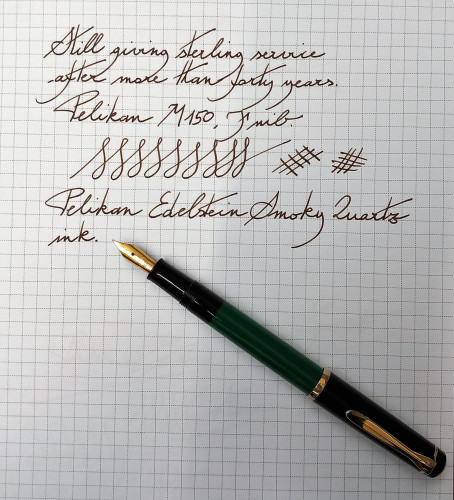 Still giving sterling service
after more than forty years.
Pelikan M150, F nib.
Pelikan Edelstein Smoky Quartz
ink.